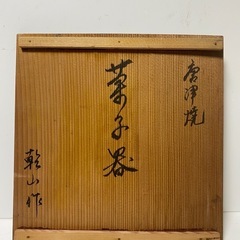 唐津焼
菓子器
乾山作